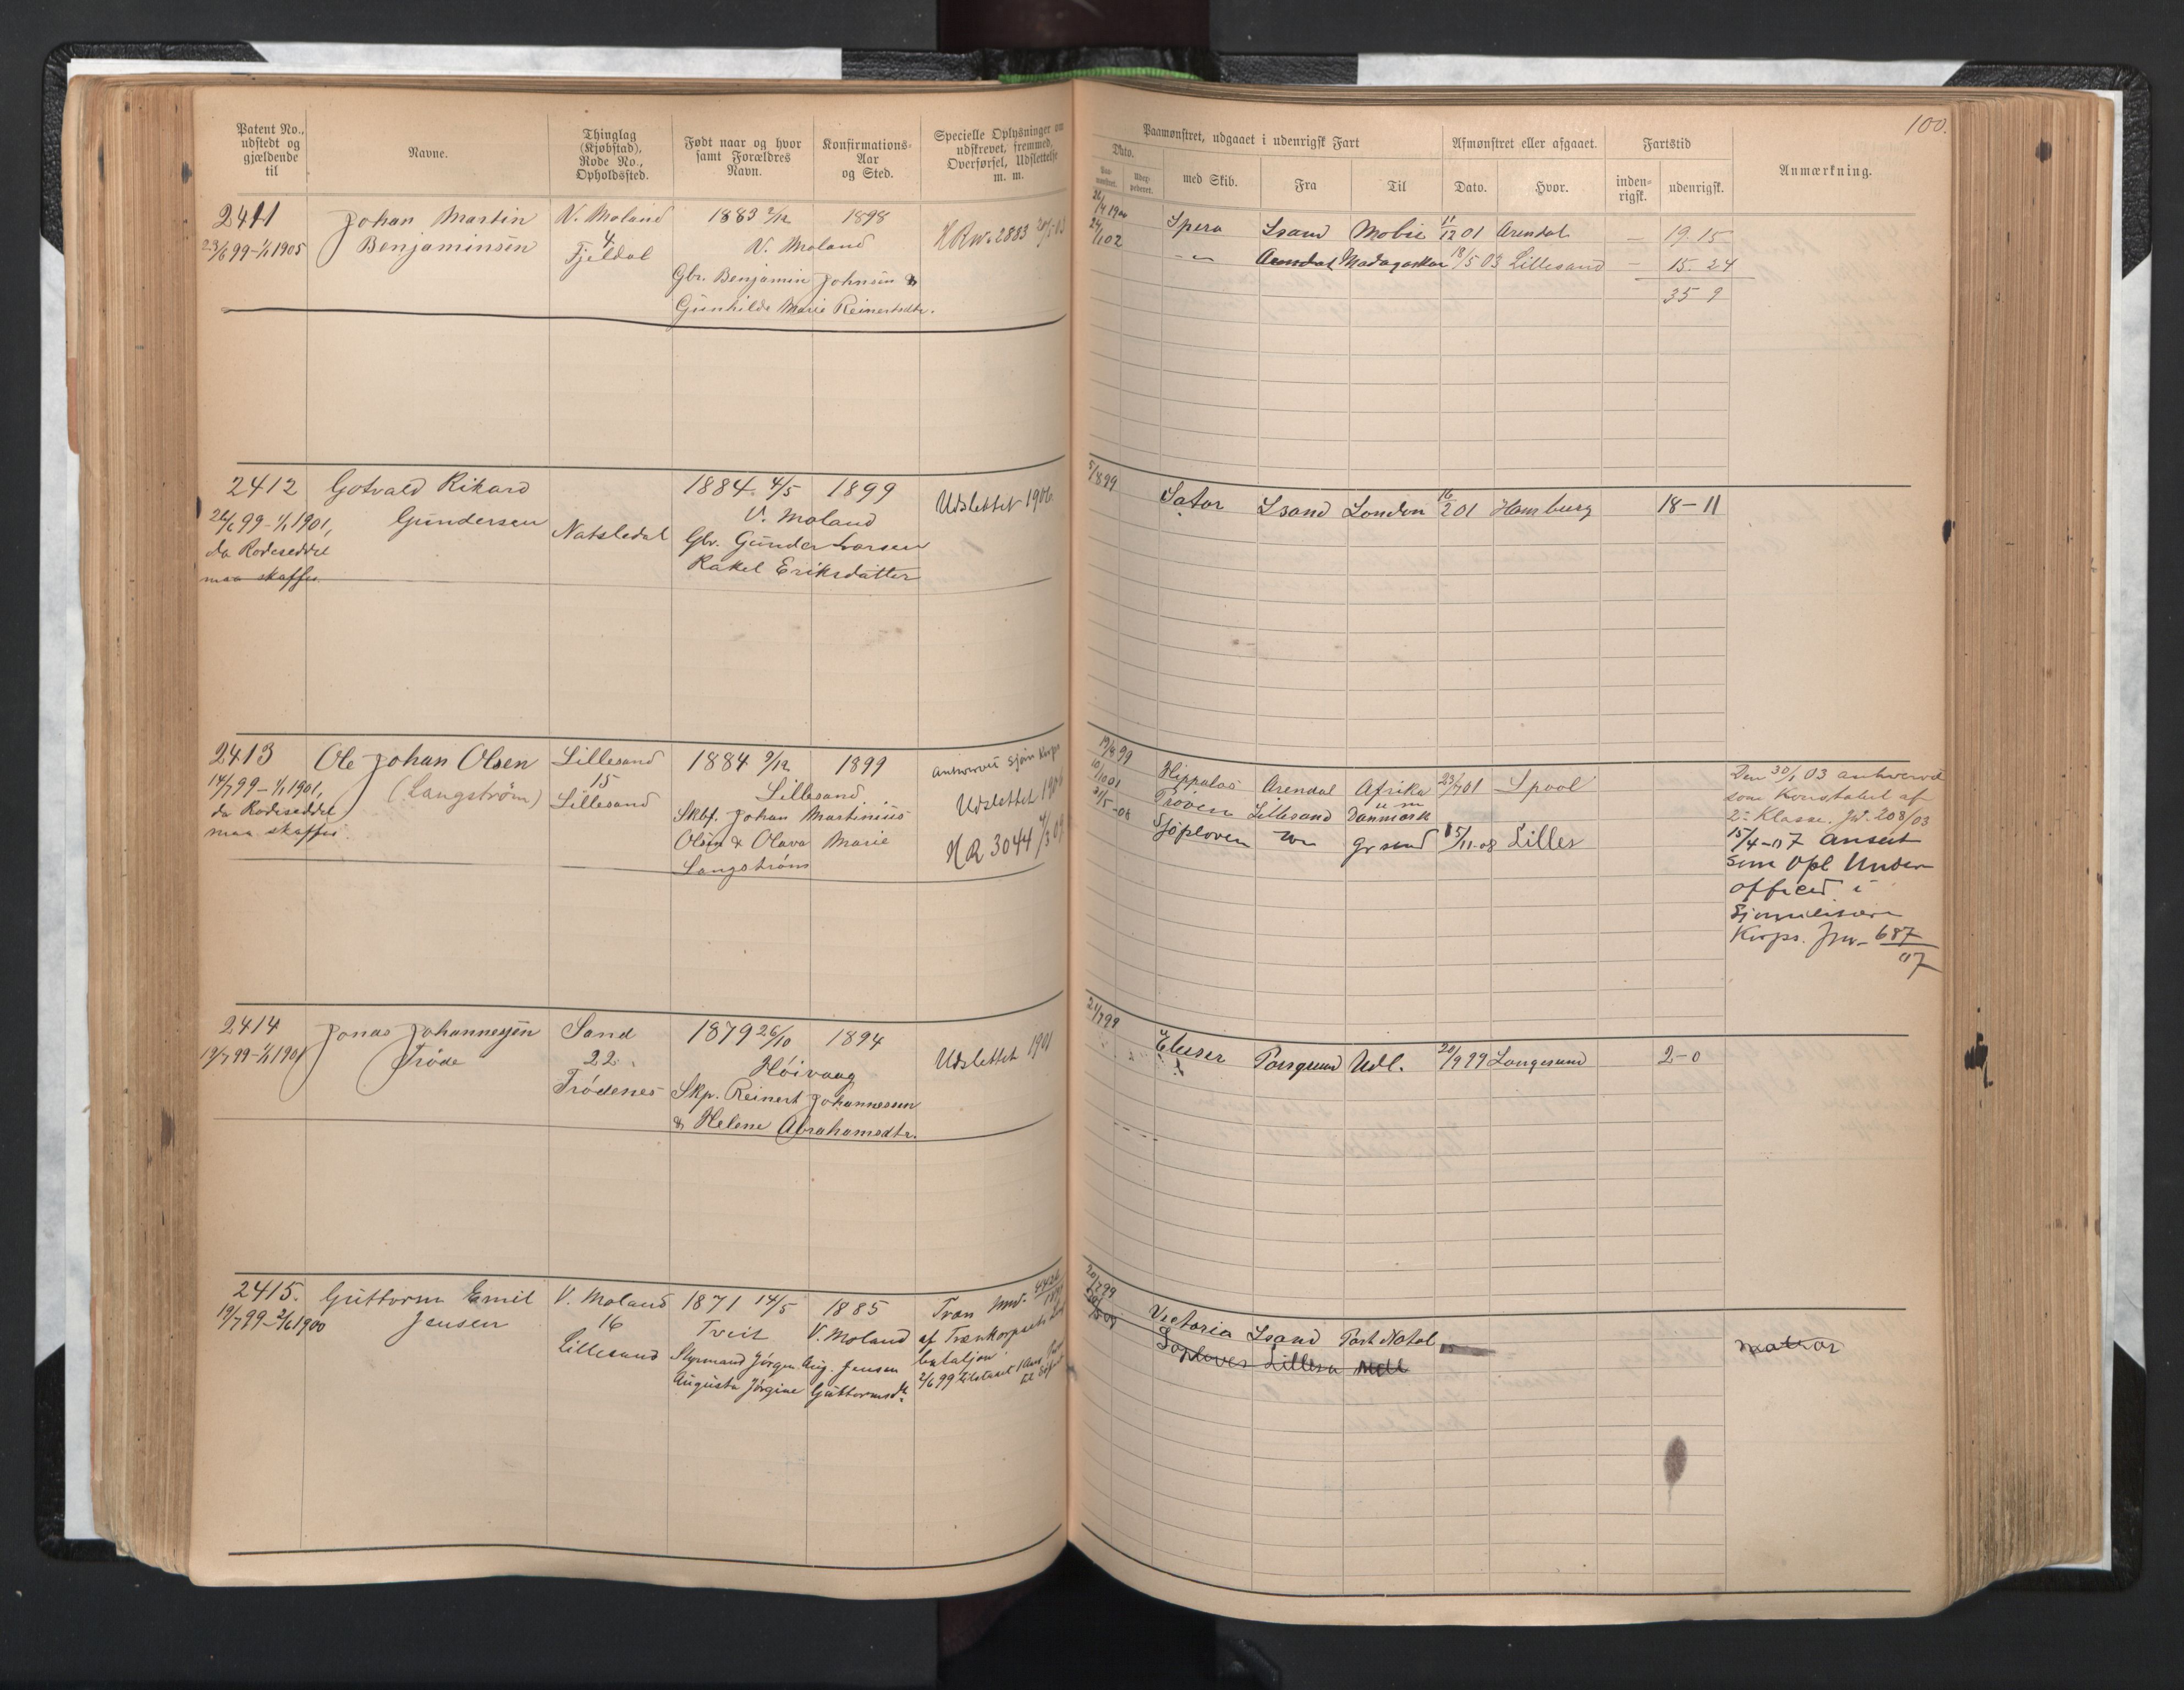 Patent No., udstedt og gjældende til
Navne.
Thinglag (Kjøbstad), Rode No., Opholdssted.
Født naar og hvor samt Forældres Navn.
Konfirmations-Aar og Sted.
Specielle Oplysninger om udskrevet, fremmed, Overførsel, Udslettelse m. m.
Paamønstret, udgaaet i udenrigsk Fart
Dato.
med Skib.
Fra
Til
Afmønstret eller afgaaet.
Dato.
Hvor.
Fartstid
inden-rigsk.
udenrigsk.
Anmærkning.
100.
2411
23/6 99 - 1/1 1905
Johan Martin
Benjaminsen
V. Moland
4
Fjeldal
1883 2/12
1898
V. Moland
Gbr. Benjamin Johnsen &
Gunhilde Marie Reinertsdtr.
2883
24/1 02
Spera Lsand Mobie 11/12 01 Arendal — 19. 15
Arendal Madagaskar 18/5 03 Lillesand — 15. 24
35 9
2412
26/6 99 - 1/1 1901,
da Rodeseddel
maa skaffes
Gotvald Rikard
Gundersen
Natsledal
1884. 4/5
1899
V. Moland
Gbr. Gunder Larsen
Rakel Eriksdatter
Udslettet 1906
5/8 99
Sator Lsand London 16/2 01 Hamburg 18 - 11
2413
14/7 99 - 1/1 1901,
da Rodeseddel
maa skaffes.
Ole Johan Olsen
(Langström)
Lillesand
15
Lillesand
1884 9/12
1899
Lillesand
Skbf. Johan Martinius
Olsen & Olava Marie
Langströms
Udslettet
HR 3044
19/8 99
Hippalos Arendal Afrika 23/7 01 Lpool
Pröven Lillesand Danmark
21/5 -08
Sjöploven Grsund 15/11-08 Lilles
Den 30/1 03 anhvervet
som Konstabel af
2. Klasse. JN. 208/03
15/4-07 Ansat
som Opl Under
officer i
Sjømilitære
Korps. Jnr- 687/07
2414
19/7 99 - 1/1 1901
Jonas Johannessen
Tröde
Sand
22.
Trödenes
1879 26/10
1894
Höivaag
Skp. Reinert Johannessen
& Helene Abrahamsdtr.
Udslettet 1901
21/7 99
Elieser Porsgrund Udl. 20/9 99 Langesund 2-0
2415.
19/7 99 - 2/6 1900
Guttorm Emil
Jensen
V. Moland
16
Lillesand
1871 14/5
1885
Tveit
V. Moland
Styrmand Jörgen Aug. Jensen
Augusta Jörgine Guttormsdt.
Træn
af Trænkorpsets
bataljon
2/6 99 tilstaaet 1 Aars
20/7 99
Victoria Lsand Port Natal
Söploven Lillesa Udl
Matros